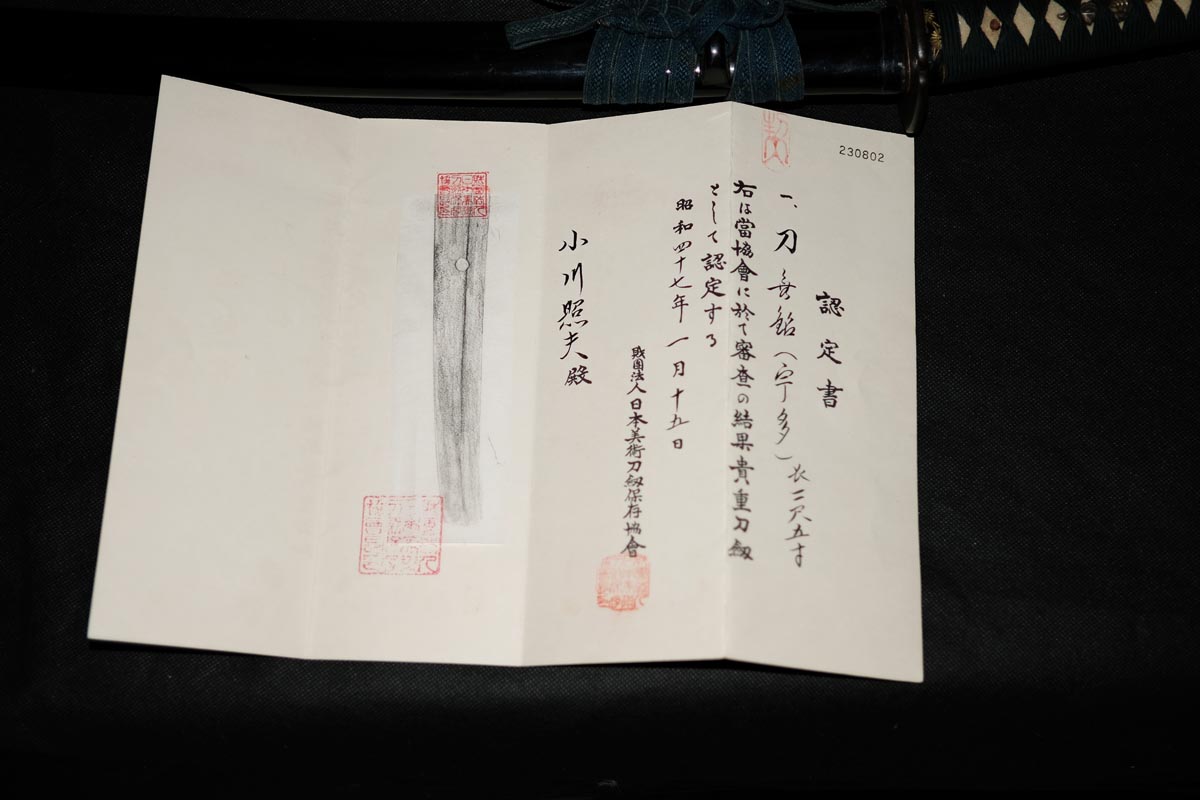 230802
認定書
一、刀 無銘(宇多) 長二尺五寸
右は當協會に於て審査の結果貴重刀剱
として認定する
昭和四十七年一月十五日
財團法人日本美術刀剱保存協會
小川照夫殿